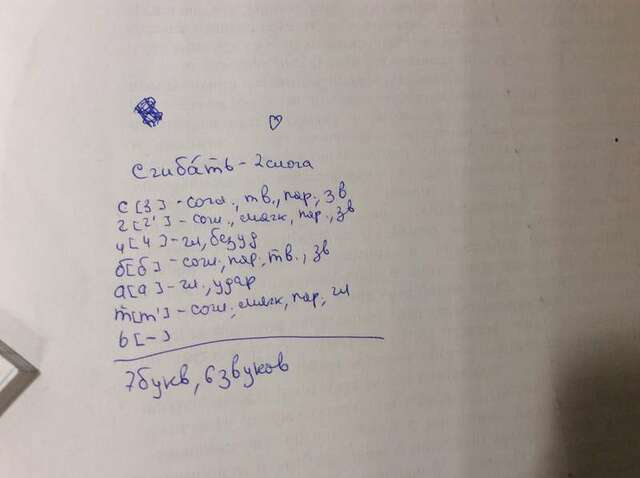 Сгиба́ть - 2 слога
с [з] - согл., тв., пар., зв
г [г'] - согл., мягк, пар., зв
и [и] - гл, безуд
б [б] - согл., пар, тв., зв
а [а] - гл., удар
т [т'] - согл., мягк, пар, гл
ь [-]
7 букв, 6 звуков